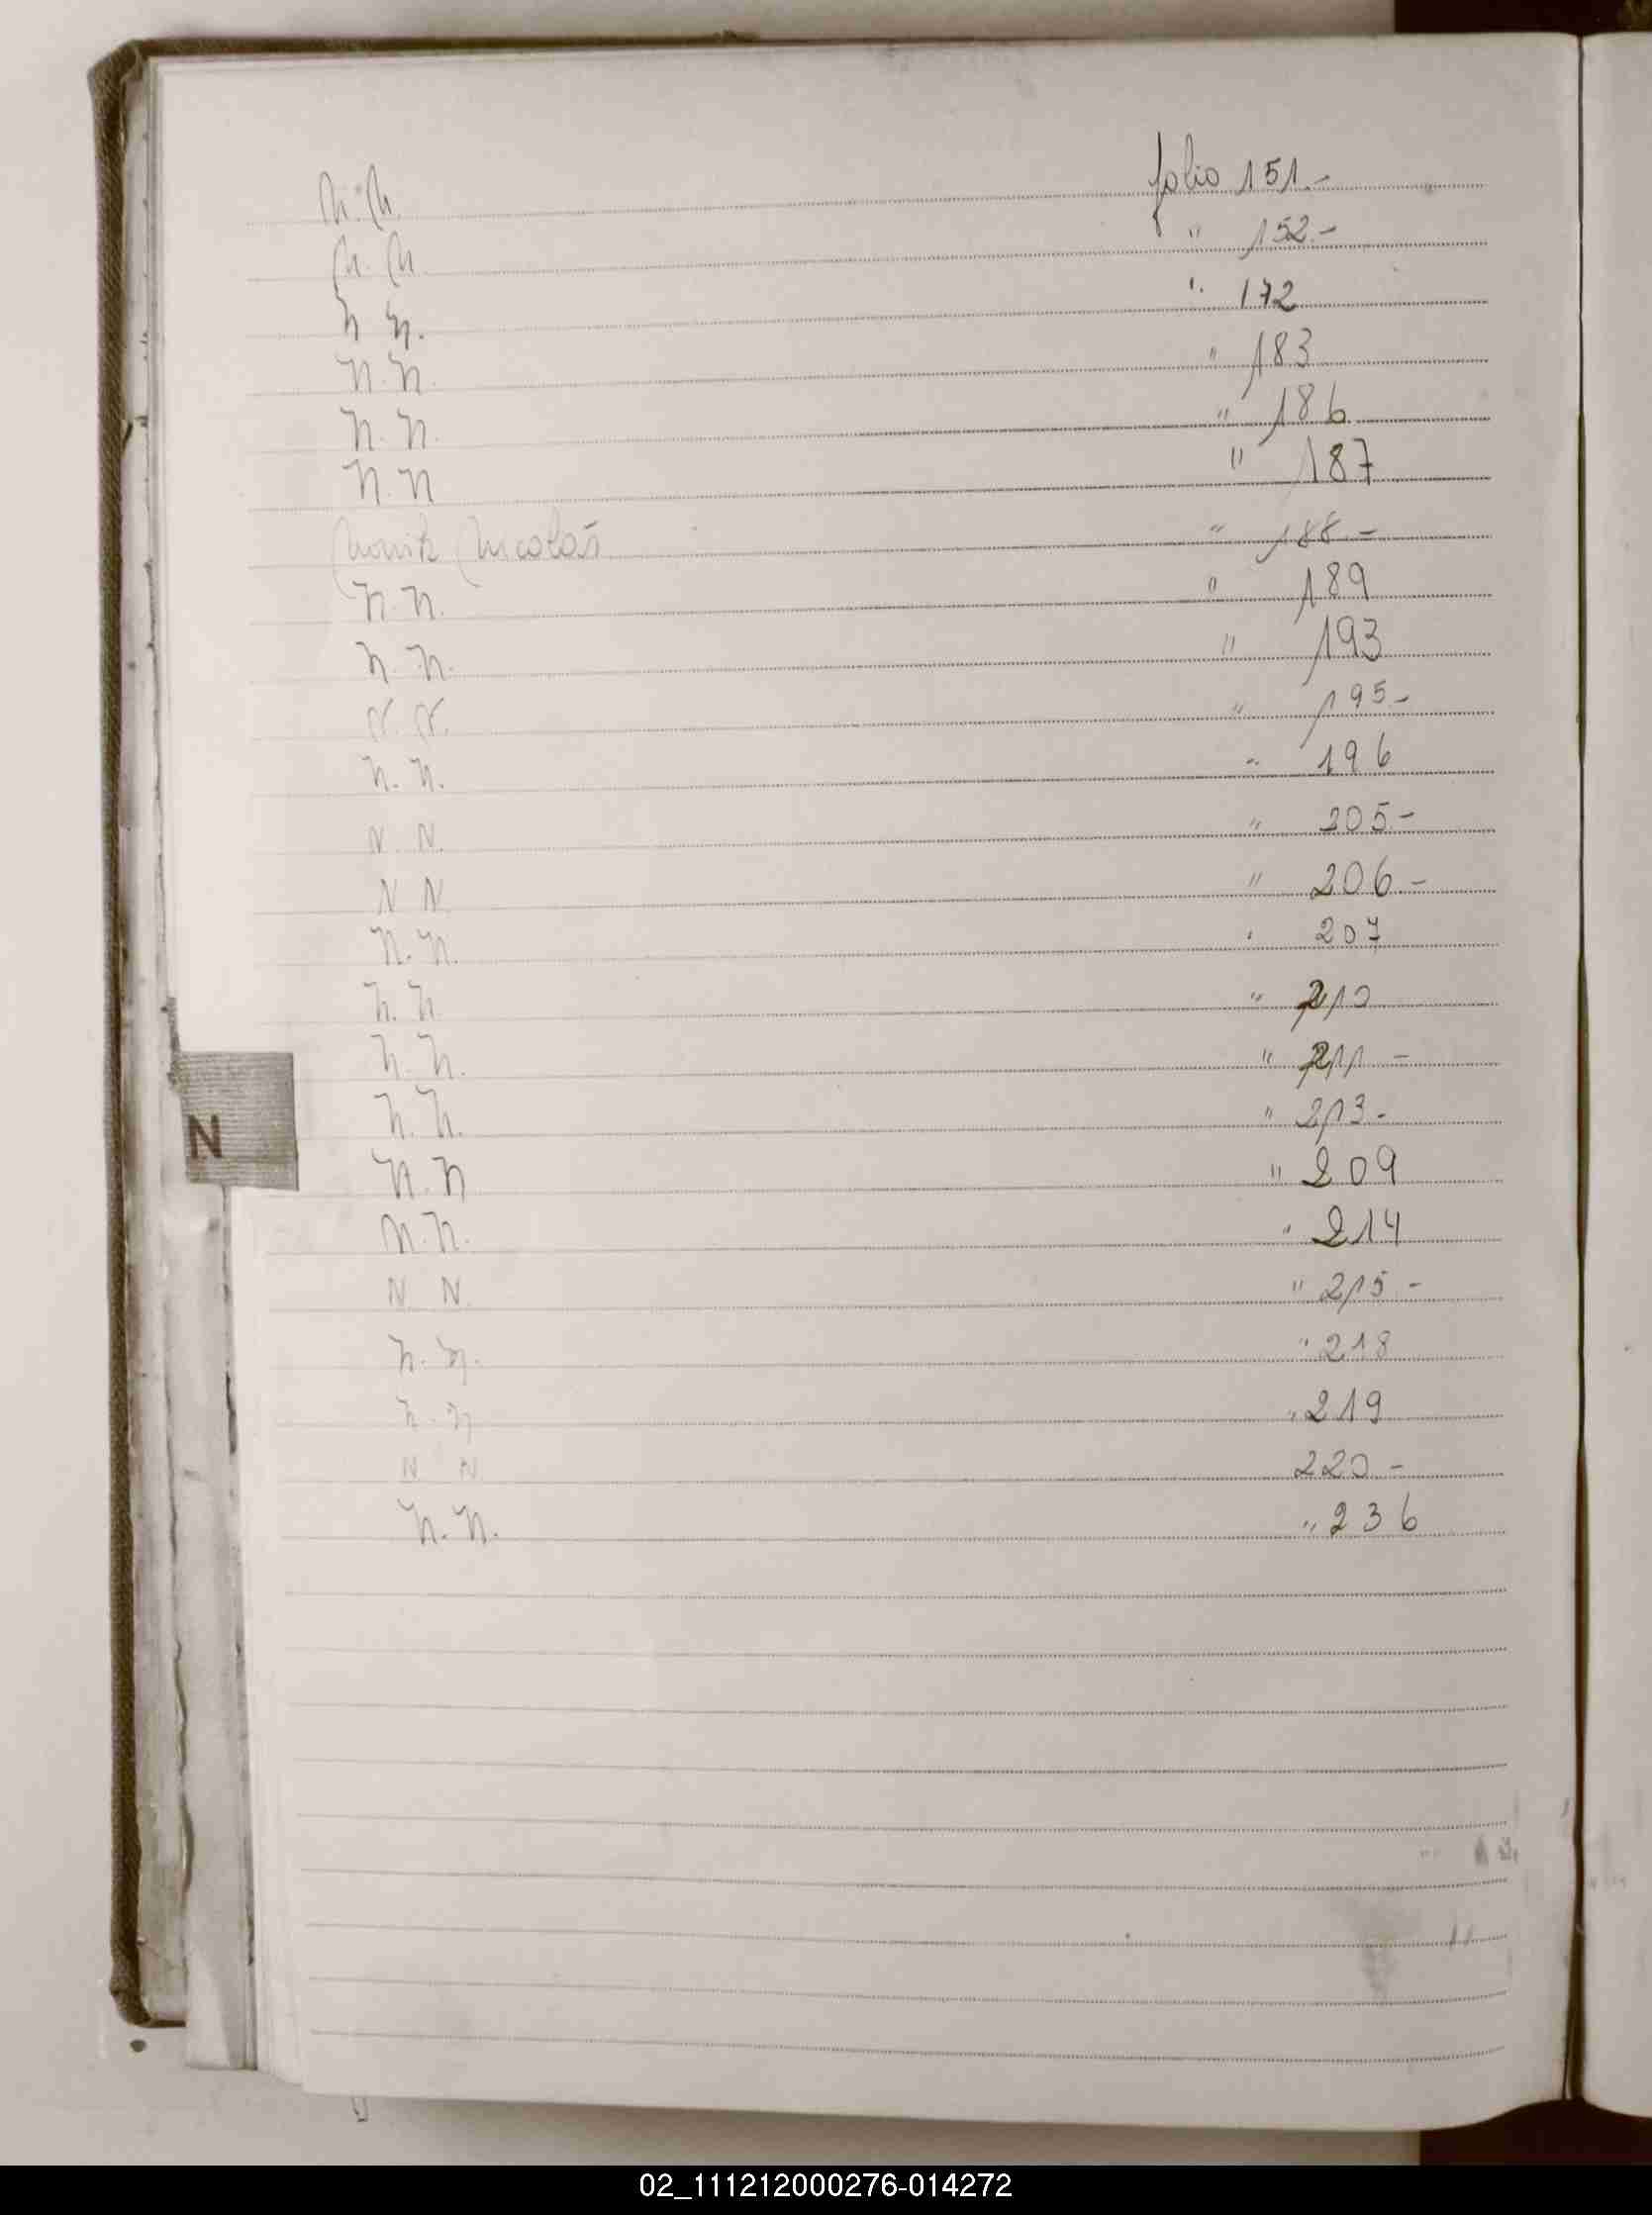 N. N. folio 151.-
N. N. " 152.-
N N. " 172
N. N. " 183
N. N. " 186
N. N " 187
Nicolás " 188 -
N. N. " 189
N. N. " 193
N. N. " 195-
N. N. " 196
N. N. " 205-
N N. " 206-
N. N. " 207
N. N " 210
N. N. " 211 -
N. N. " 213-
N. N " 209
N. N. " 214
N N. " 215 -
N. N. " 218
N. N " 219
N N 220 -
N. N. " 236
N
02_111212000276-014272